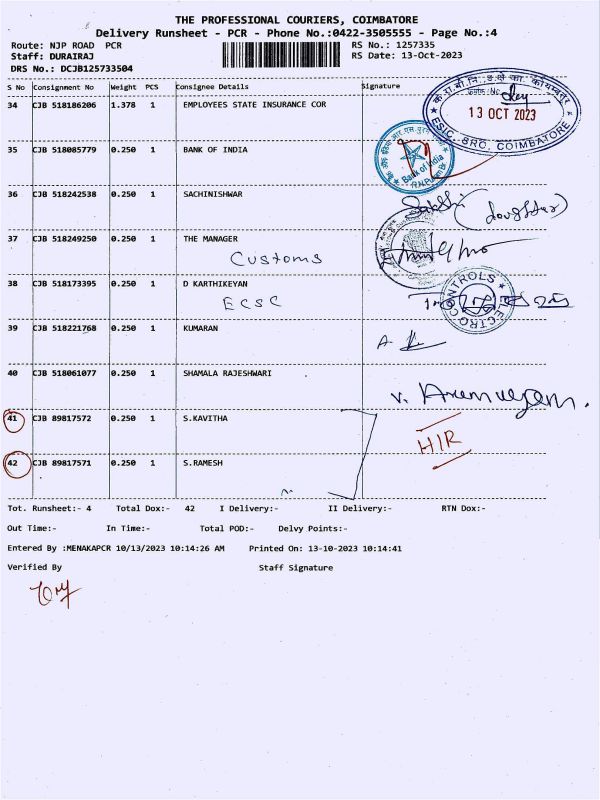 THE PROFESSIONAL COURIERS, COIMBATORE
Delivery Runsheet - PCR - Phone No.:0422-3505555 - Page No.:4
Route: NJP ROAD PCR
RS No.: 1257335
Staff: DURAIRAJ
RS Date: 13-Oct-2023
DRS No.: DCJB125733504
S No Consignment No Weight PCS Consignee Details Signature
34 CJB 518186206 1.378 1 EMPLOYEES STATE INSURANCE COR
13 OCT 2023
ESIC, SRO, COIMBATORE
35 CJB 518085779 0.250 1 BANK OF INDIA
Bank of India
R.N. Puram Br.
36 CJB 518242538 0.250 1 SACHINISHWAR
Sakthi (doughter)
37 CJB 518249250 0.250 1 THE MANAGER
Customs
38 CJB 518173395 0.250 1 D KARTHIKEYAN
ECSC
39 CJB 518221768 0.250 1 KUMARAN
40 CJB 518061077 0.250 1 SHAMALA RAJESHWARI
V. Arumugam.
41 CJB 89817572 0.250 1 S.KAVITHA
HIR
42 CJB 89817571 0.250 1 S.RAMESH
Tot. Runsheet:- 4 Total Dox:- 42 I Delivery:- II Delivery:- RTN Dox:-
Out Time:- In Time:- Total POD:- Delvy Points:-
Entered By :MENAKAPCR 10/13/2023 10:14:26 AM Printed On: 13-10-2023 10:14:41
Verified By Staff Signature